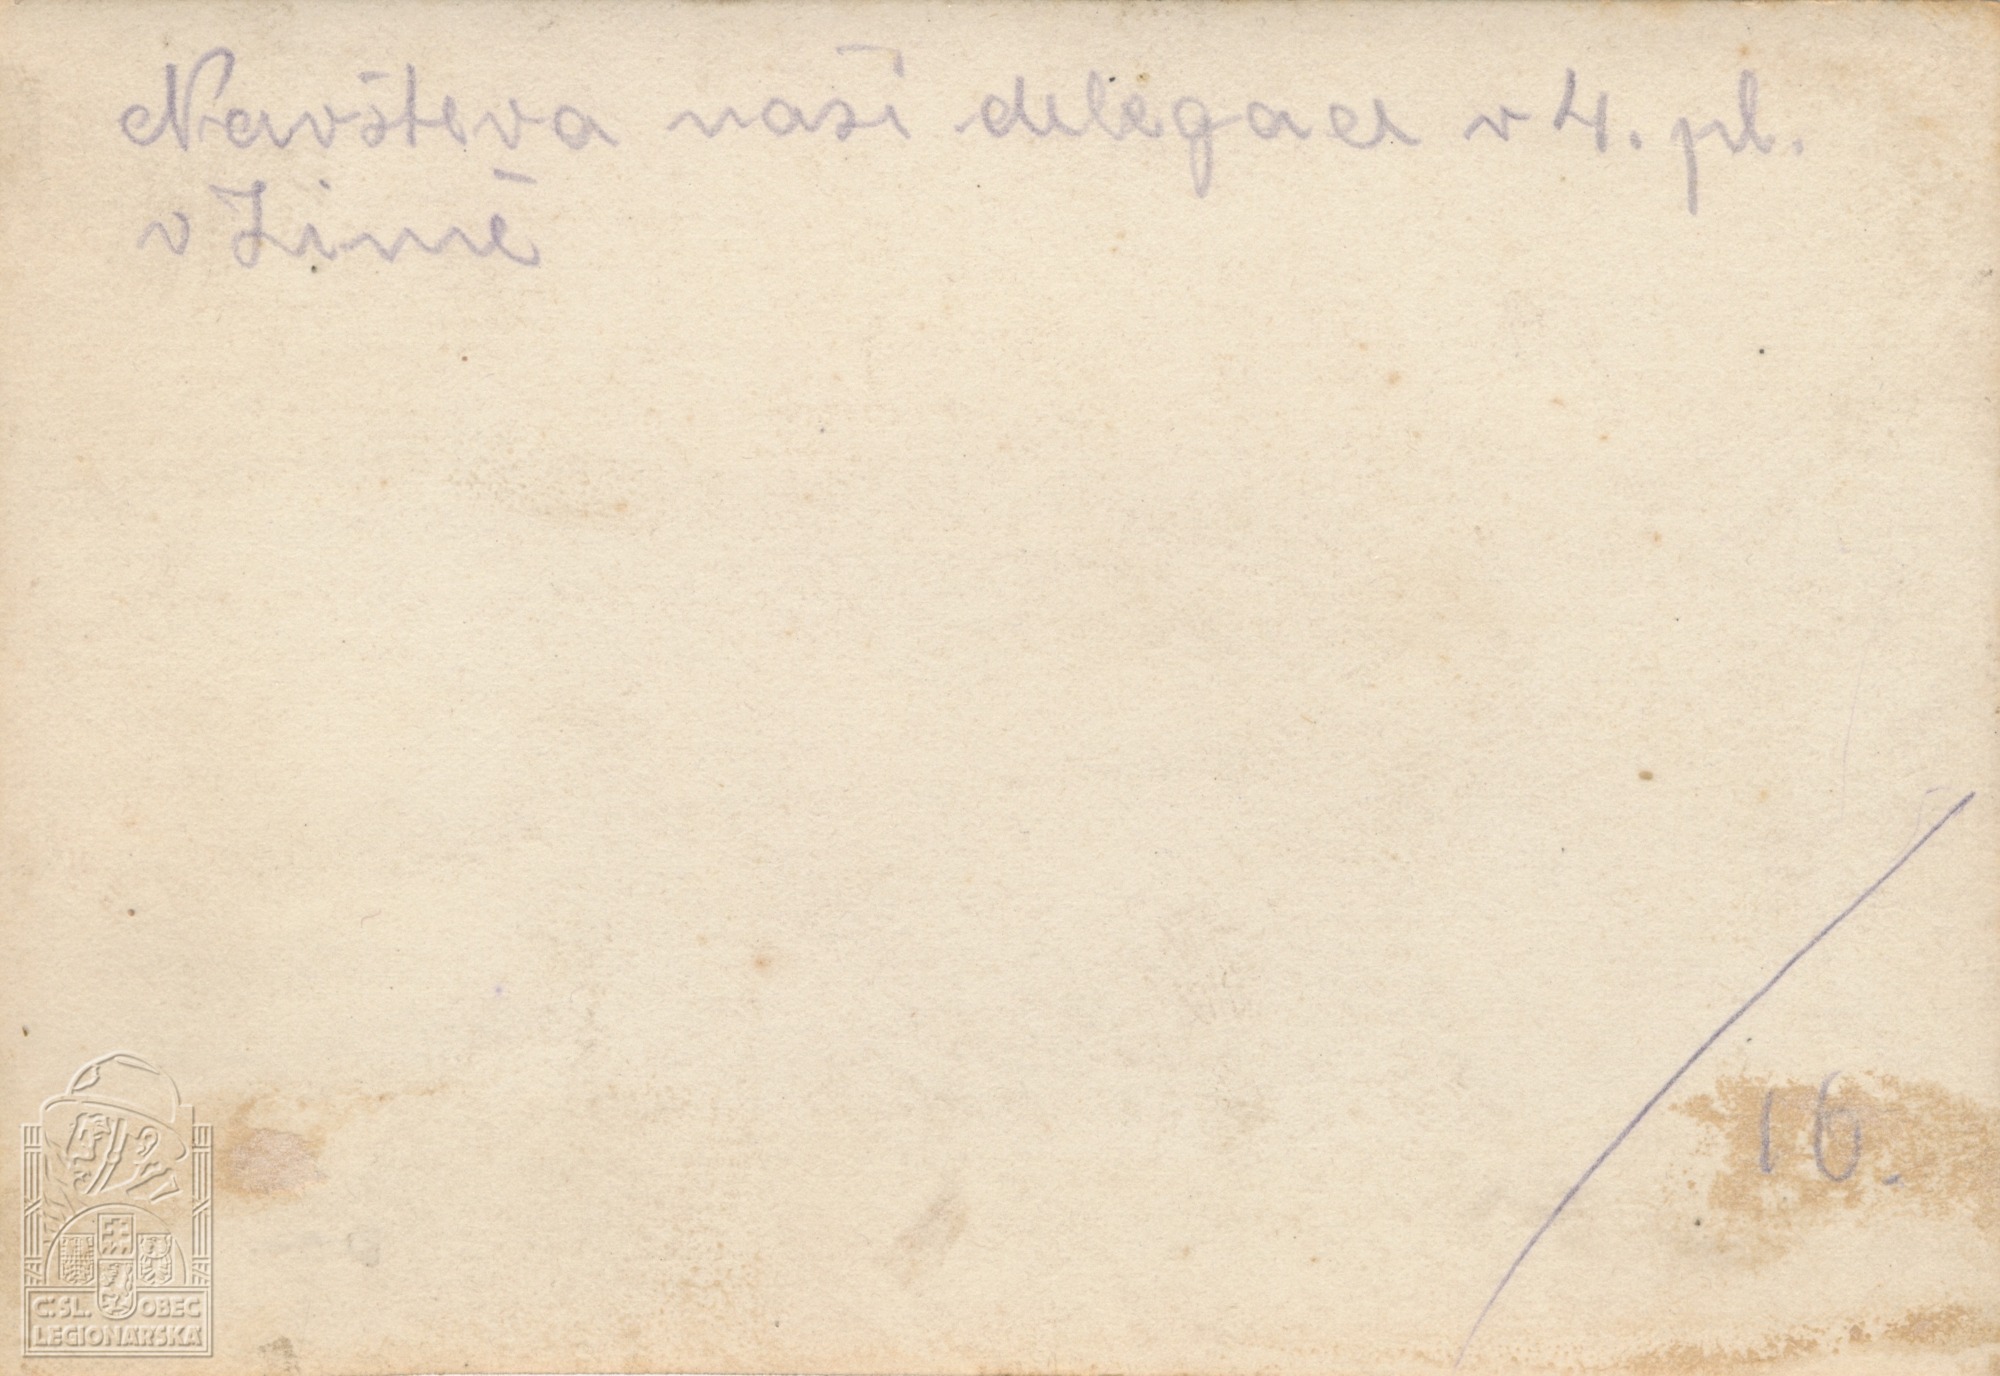 Navšteva naší delegace v 4. pl.
v Zimě
16.
Č.SL. OBEC
LEGIONÁŘSKÁ